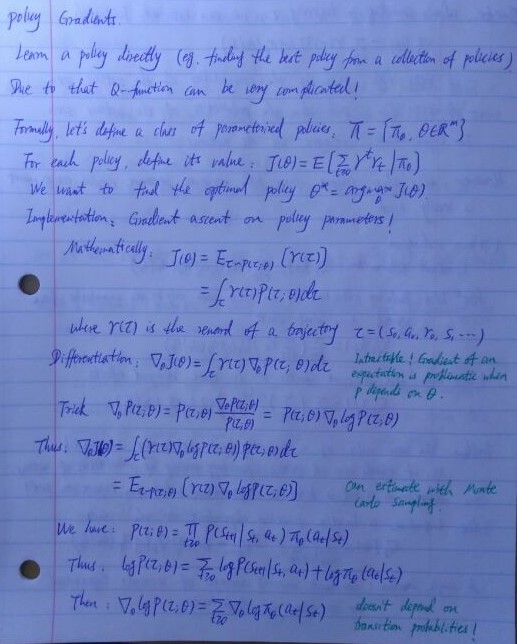 Policy Gradients.
Learn a policy directly (eg. finding the best policy from a collection of policies)
Due to that Q-function can be very complicated!
Formally, let's define a class of parametrized policies, Π = {π_θ, θ∈R^m}
For each policy, define its value: J(θ) = E[∑_{t≥0} γ^t r_t | π_θ]
We want to find the optimal policy θ* = argmax_θ J(θ)
Implementation: Gradient ascent on policy parameters!
Mathematically: J(θ) = E_{τ~p(τ;θ)} [r(τ)]
= ∫_τ r(τ) p(τ;θ) dτ
where r(τ) is the reward of a trajectory τ = (s₀, a₀, r₀, s, ...)
Differentiation: ∇_θ J(θ) = ∫_τ r(τ) ∇_θ p(τ;θ) dτ
Intractable! Gradient of an
expectation is problematic when
p depends on θ.
Trick ∇_θ p(τ;θ) = p(τ;θ) ∇_θ p(τ;θ) / p(τ;θ) = p(τ;θ) ∇_θ log p(τ;θ)
Thus: ∇_θ J(θ) = ∫_τ (r(τ) ∇_θ log p(τ;θ)) p(τ;θ) dτ
= E_{τ~p(τ;θ)} [r(τ) ∇_θ log p(τ;θ)]
Can estimate with Monte
Carlo sampling.
We have: p(τ;θ) = ∏_{t≥0} p(s_{t+1} | s_t, a_t) π_θ(a_t | s_t)
Thus: log p(τ;θ) = ∑_{t≥0} log p(s_{t+1} | s_t, a_t) + log π_θ(a_t | s_t)
Then: ∇_θ log p(τ;θ) = ∑_{t≥0} ∇_θ log π_θ(a_t | s_t)
doesn't depend on
transition probabilities!